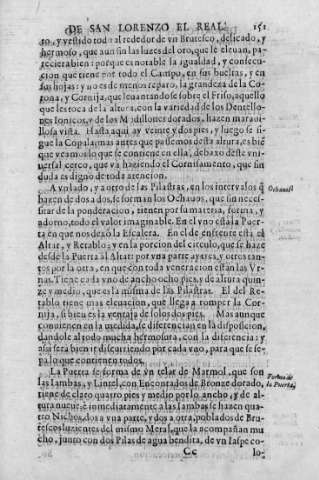 DE SAN LORENZO EL REAL. 151
ro, y vestido todo al rededor de vn Brutesco, delicado, y
hermoso, que aun sin las luzes del oro, que le eleuan, pa-
reciera bien: porque es notable la igualdad, y consecu-
cion que tiene por todo el Campo, en sus bueltas, y en
sus hojas: y no es de menos reparo, la grandeza de la Co-
rona, y Cornija, que leuantandose sobre el Friso, aquello
que les toca de la altura, con la variedad de los Dentello-
nes Ionicos, y de los Modillones dorados, hazen maraui-
llosa vista. Hasta aqui ay veinte y dos pies, y luego se si-
gue la Copula, mas antes que passemos desta altura, es biẽ
que veamos lo que se contiene en ella, debaxo deste vni-
uersal cerco, que va haziendo el Cornisamento, que sin
duda es digno de toda atencion.
A vn lado, y a otro de las Pilastras, en los intervalos q̃
hazen de dos a dos, se forman los Ochauos, que sin necesi-
dad de la ponderacion, tienen por su materia, forma, y
adorno todo el valor imaginable. En el vno està la Puer-
ta en que nos dexò la Escalera. En el de enfrente està el
Altar, y Retablo: y en la porcion del circulo, que se haze
desde la Puerta al Altar: por vna parte ay tres, y otros tan-
tos por la otra, en que con toda veneracion estàn las Vr-
nas. Tiene cada vno de ancho ocho pies, y de altura quin-
ze y medio, que es la misma de las Pilastras. El del Re-
tablo tiene mas eleuacion, que llega a romper la Cor-
nija, si bien es la ventaja de solos dos pies. Mas aunque
conuienen en la medida, se diferencian en la disposicion,
dandole al todo mucha hermosura, con la diferencia: y
assi serà bien ir discurriendo por cada vno, para que se se-
pa lo que contienen todos.
La Puerta se forma de vn telar de Marmol, que son
las Iambas, y Lintel, con Encontrados de Bronze dorado,
tiene de claro quatro pies y medio por lo ancho, y de al-
tura nueue: è inmediatamente a las Iambas se hazen quatro
Nichos, dos a vna parte, y dos a otra, poblados de Bru-
tescos luzientes del mismo Metal, que la acompañan mu-
cho, junto con dos Pilas de agua bendita, de vn Iaspe co-
Cc lo-
Ochauas
Forma de
la Puerta.